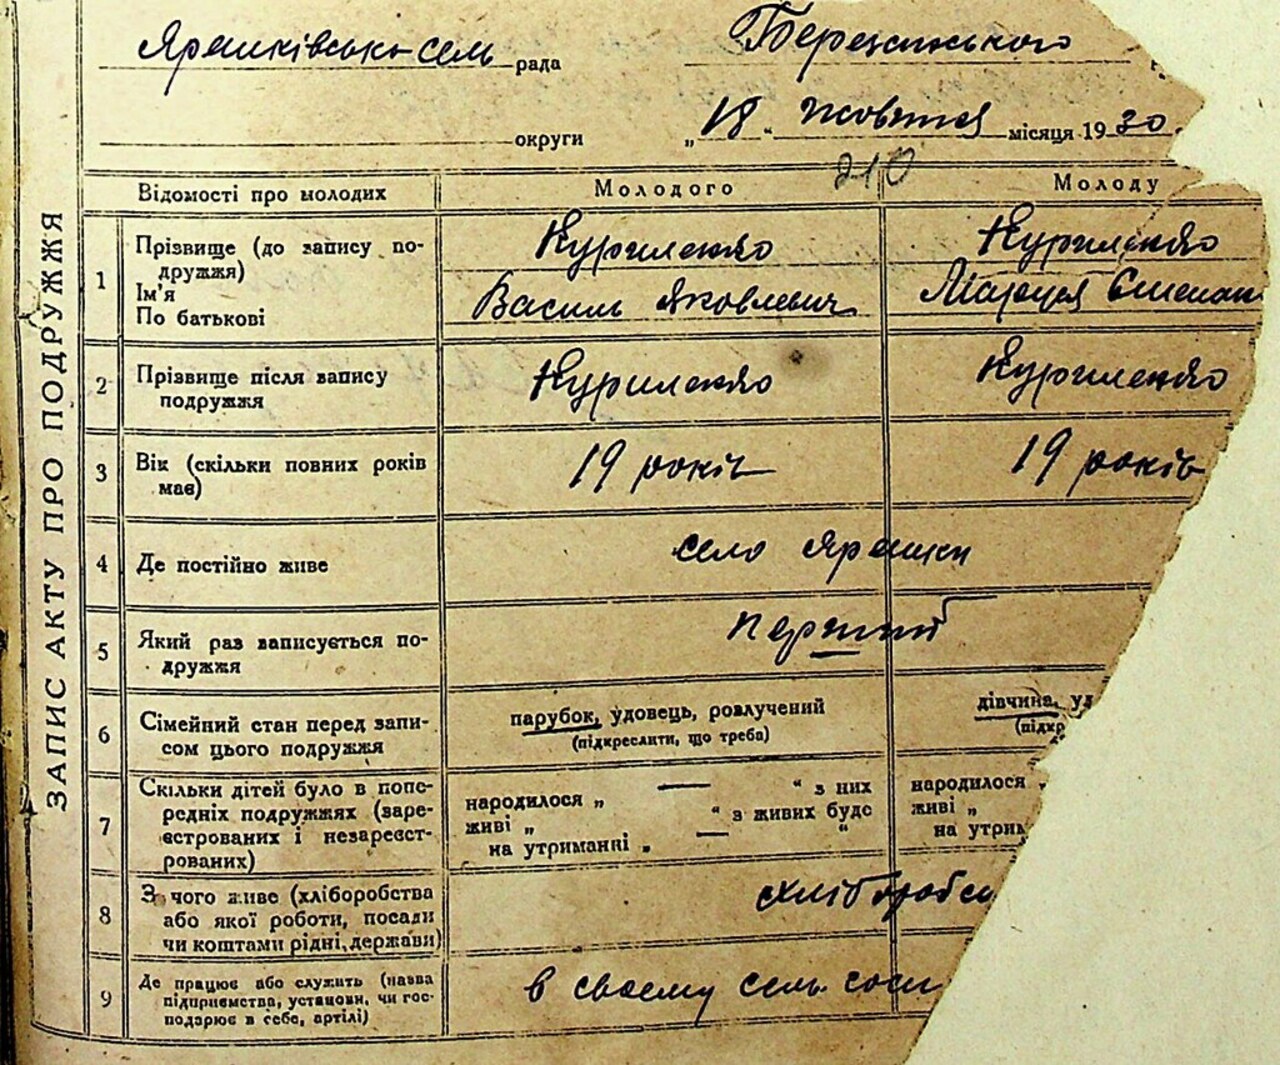 Ярешківська сель рада
округи
„18“ жовтня місяця 1930
210
ЗАПИС АКТУ ПРО ПОДРУЖЖЯ
Відомості про молодих
Молодого
Молоду
1
Прізвище (до запису по-
дружжя)
Ім'я
По батькові
Куриленко
Василь Яковлевич
Куриленко
Степан
2
Прізвище після запису
подружжя
Куриленко
Куриленко
3
Вік (скільки повних років
має)
19 років
19 років
4
Де постійно живе
село Ярешки
5
Який раз записується по-
дружжя
перший
6
Сімейний стан перед запи-
сом цього подружжя
парубок, удовець, розлучений
(підкреслити, що треба)
дівчина, уд
(підкр
7
Скільки дітей було в попе-
редніх подружжях (заре-
єстрованих і незареєст-
рованих)
народилося „ — “ з них
живі „ “ з живих буде
на утриманні „ — “
народилося „
живі „
на утрим
8
З чого живе (хліборобства
або якої роботи, посади
чи коштами рідні, держави)
хлібороб
9
Де працює або служить (назва
підприємства, установи, чи гос-
подарює в себе, артілі)
в своєму сель. госп